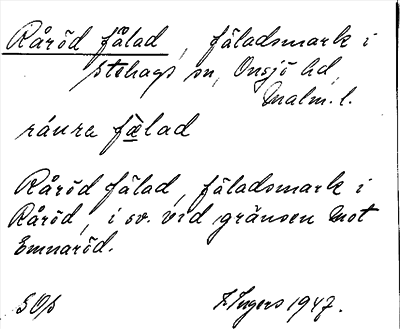 Råröd fälad, fäladsmark i
Stehags sn, Onsjö hd,
Malm. l.
ráura fælad
Råröd fälad, fäladsmark i
Råröd, i sv. vid gränsen mot
Emnaröd.
F. Ingers 1947.